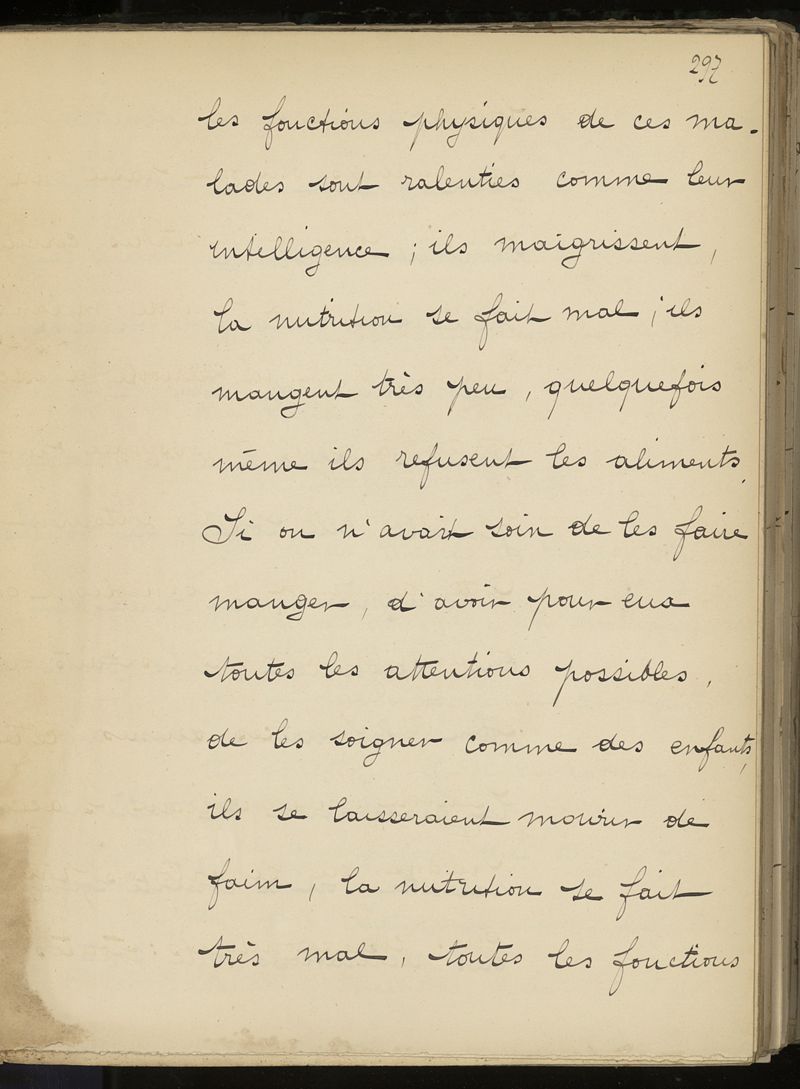 297
les fonctions physiques de ces ma-
lades sont ralenties comme leur
intelligence ; ils maigrissent,
la nutrition se fait mal ; ils
mangent très peu, quelquefois
même ils refusent les aliments.
Si on n'avait soin de les faire
manger, d'avoir pour eux
toutes les attentions possibles,
de les soigner comme des enfants,
ils se laisseraient mourir de
faim, la nutrition se fait
très mal, toutes les fonctions